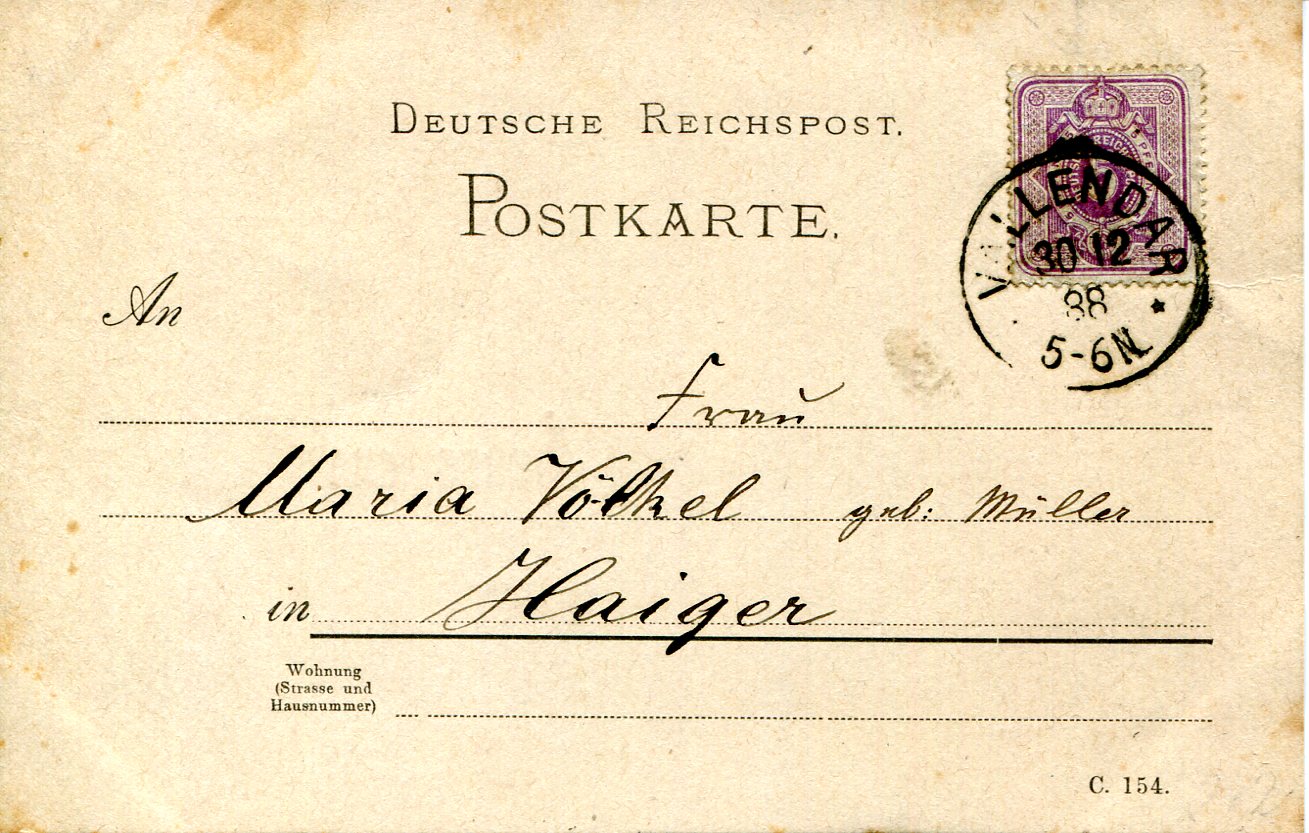 DEUTSCHE REICHSPOST.
POSTKARTE.
VALLENDAR
30 12
88
5-6N
An
Frau
Maria Völkel geb: Müller
in Haiger
Wohnung
(Strasse und
Hausnummer)
C. 154.